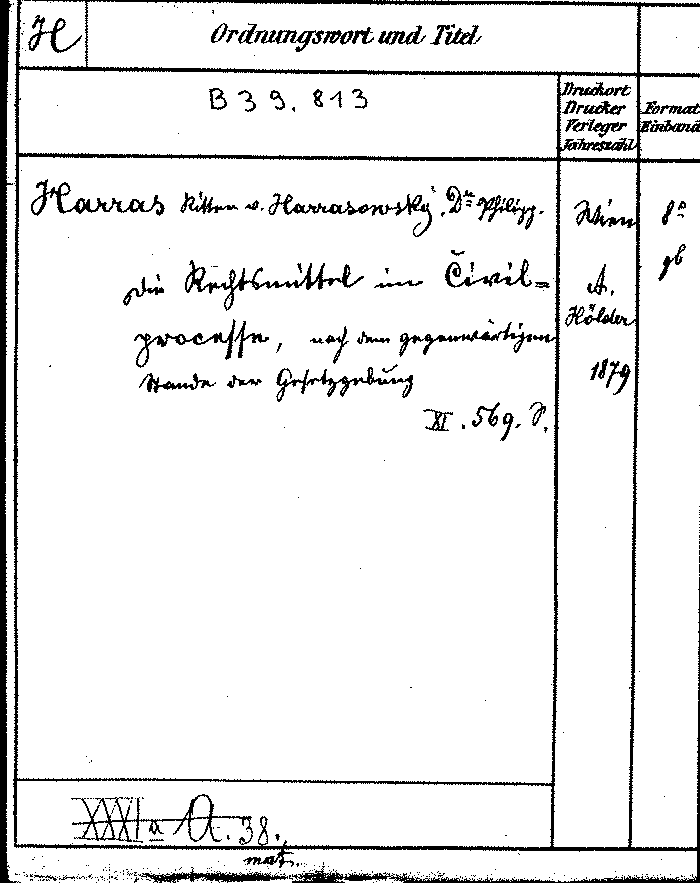 H
Ordnungswort und Titel
B39.813
Druckort
Drucker
Verleger
Jahreszahl
Format
Einband
Harras Ritter v. Harrasowský, Dr. Philipp.
Wien
8°
gb
Die Rechtsmittel im Civil=
A.
processe, nach dem gegenwärtigen
Hölder
Stande der Gesetzgebung
1879
XI. 569. S.
XXXI a A. 38.
mat.